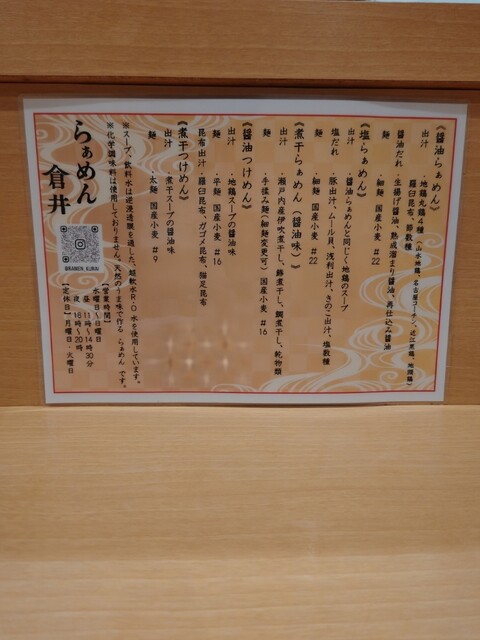 《醤油らぁめん》
出汁 ・地鶏丸鶏4種（山水地鶏、名古屋コーチン、近江黒鶏、地頭鶏）
羅臼昆布、節数種
醤油だれ ・生揚げ醤油、熟成溜まり醤油、再仕込み醤油
麺 ・細麺 国産小麦 #22
《塩らぁめん》
出汁 ・醤油らぁめんと同じく地鶏のスープ
塩だれ ・豚出汁、ムール貝、浅利出汁、きのこ出汁、塩数種
麺 ・細麺 国産小麦 #22
《煮干らぁめん（醤油味）》
出汁 ・瀬戸内産伊吹煮干し、鯵煮干し、鯛煮干し、乾物類
麺 ・手揉み麺（細麺変更可）国産小麦 #16
《醤油つけめん》
出汁 ・地鶏スープの醤油味
麺 ・平麺 国産小麦 #16
昆布出汁 ・羅臼昆布、ガゴメ昆布、猫足昆布
《煮干つけめん》
出汁 ・煮干スープの醤油味
麺 ・太麺 国産小麦 #9
※スープ、飲料水は逆浸透膜を通した、超軟水R・O水を使用しています。
※化学調味料は使用しておりません。天然のうま味で作る らぁめん です。
らぁめん 倉井
@RAMEN_KURAI
【営業時間】
水曜日〜日曜日
昼 11時〜14時30分
夜 18時〜20時
【定休日】月曜日・火曜日